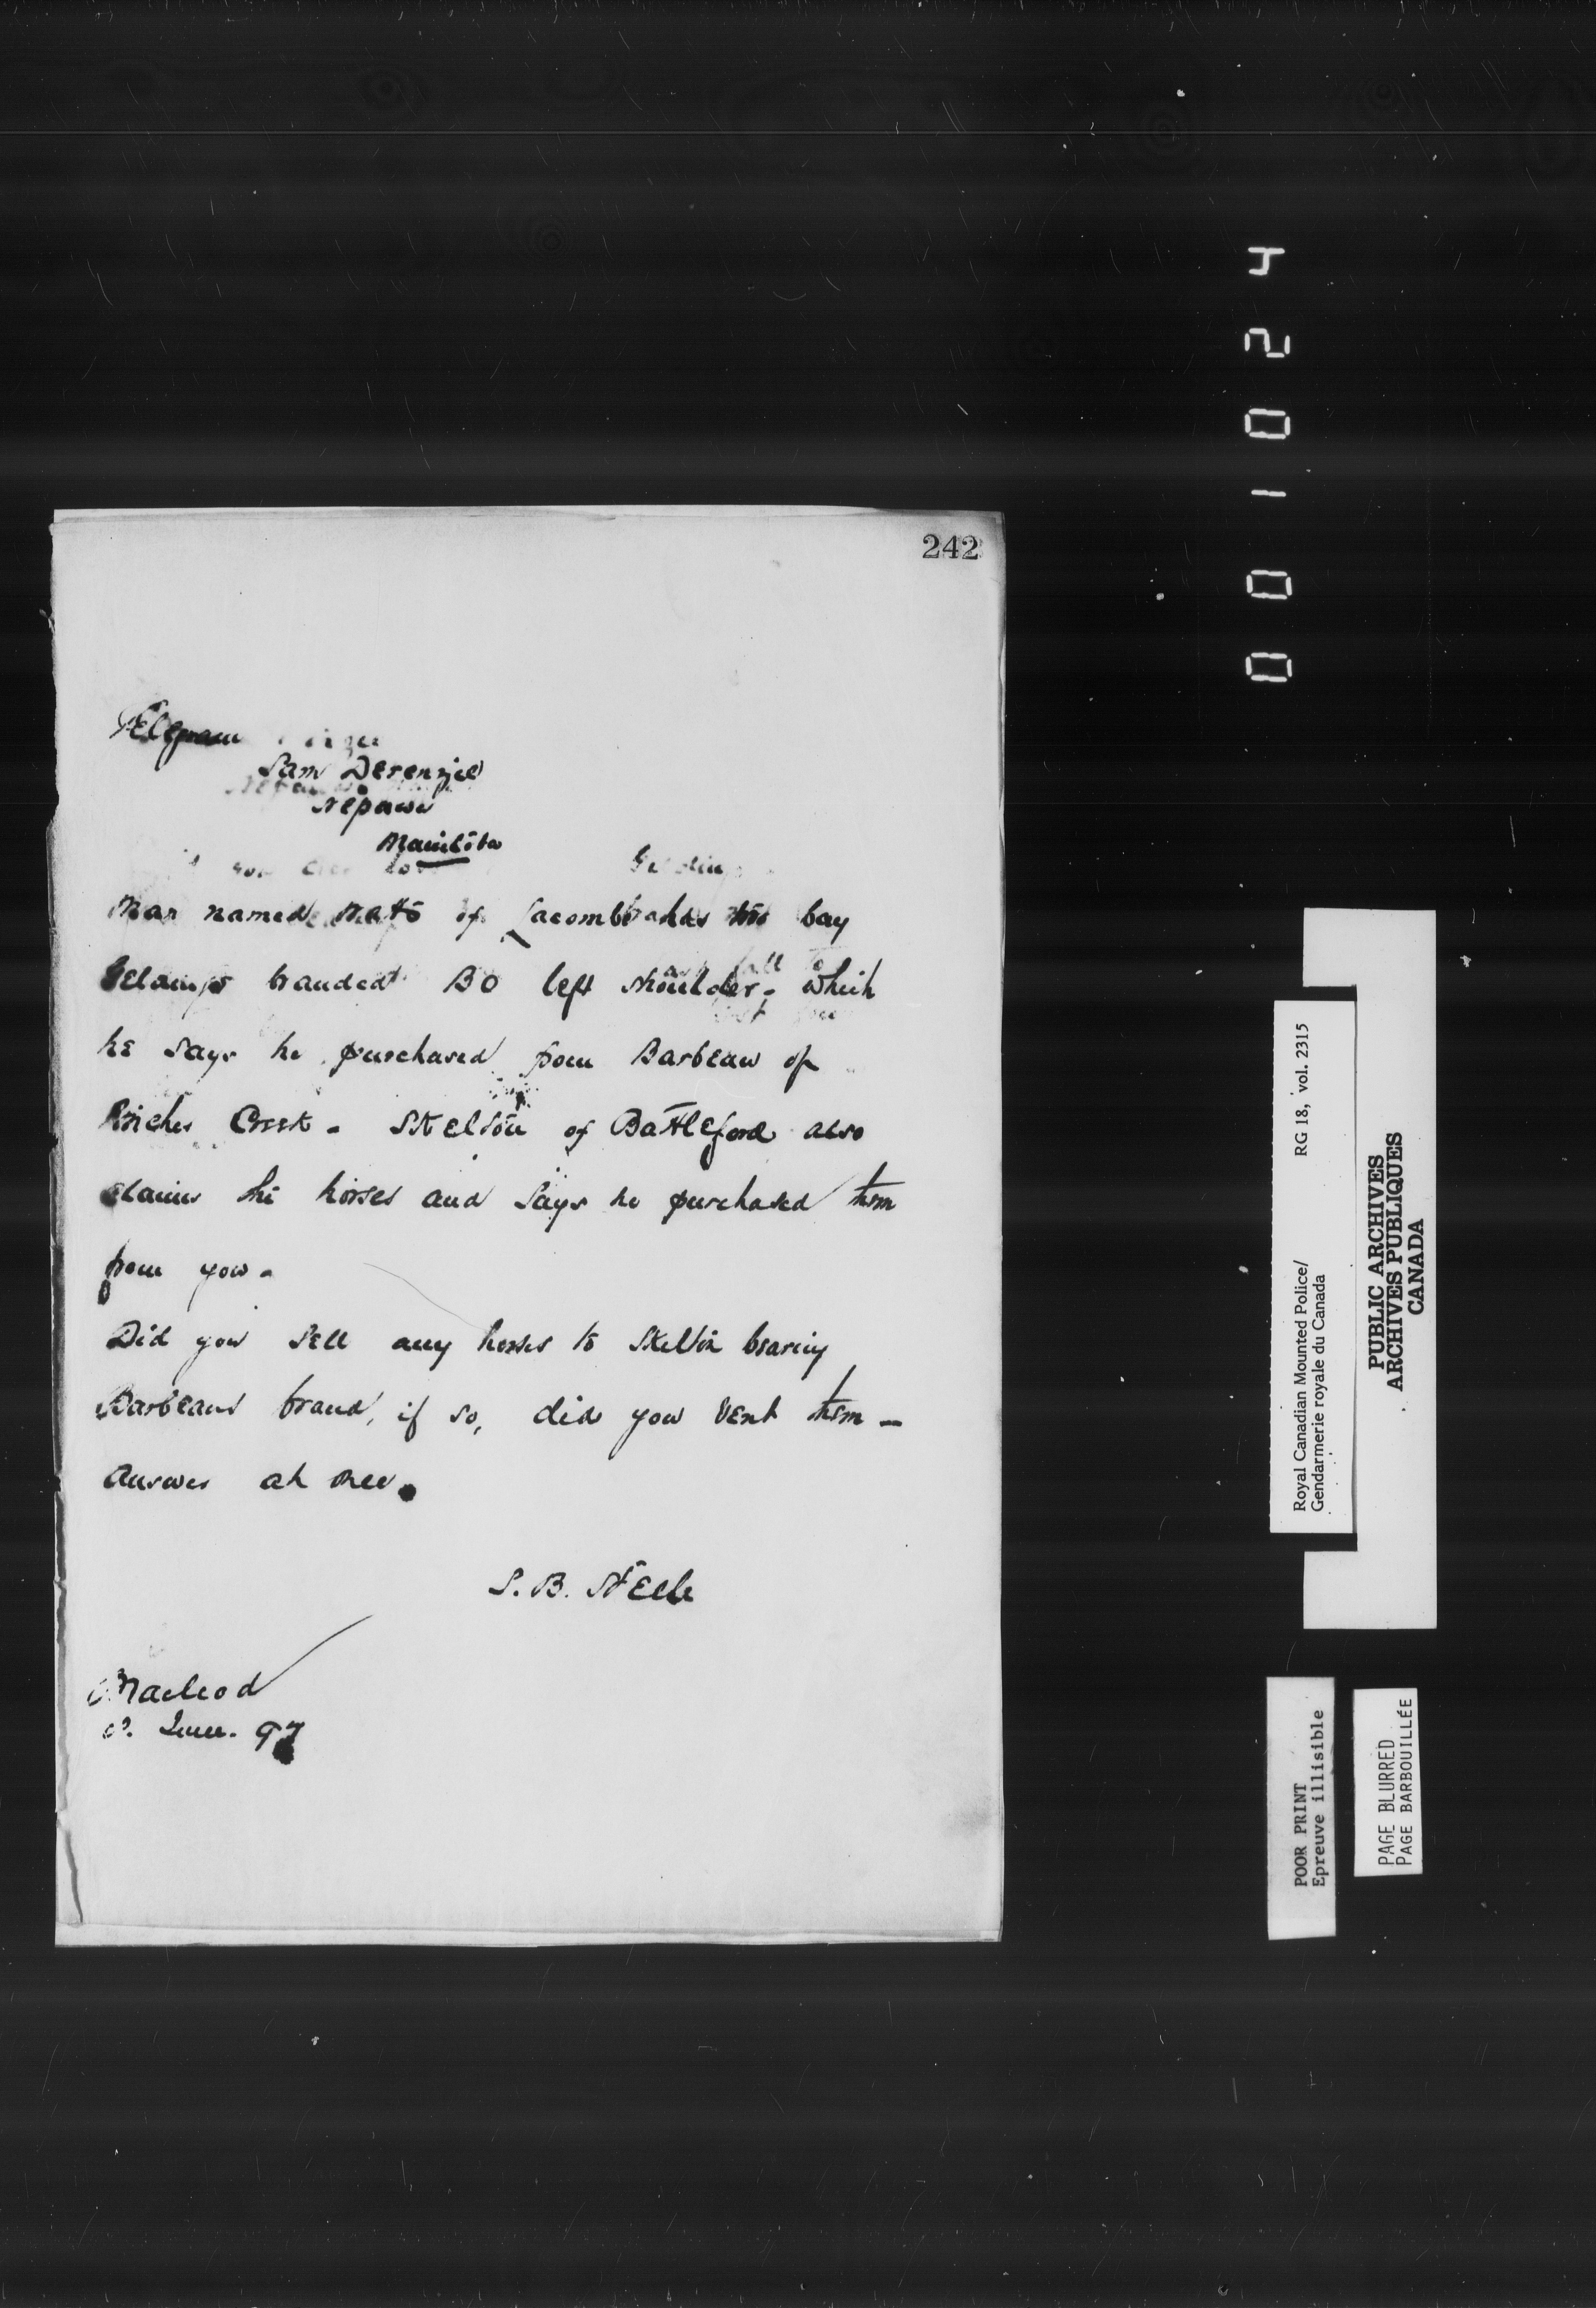 242
Telegram
Sam Derenzie
Nepawa
Manitoba
Man named of Lacombe has two bay
Geldings branded BO left shoulder - which
he says he purchased from Barbeau of
Pincher Creek - Skelton of Battleford also
claims the horses and says he purchased them
from you -
Did you sell any horses to Skelton bearing
Barbeaus brand, if so, did you vent them -
Answer at once.
S. B. Steele
Macleod
June. 97
001024
Royal Canadian Mounted Police/ RG 18, vol. 2315
Gendarmerie royale du Canada
PUBLIC ARCHIVES
ARCHIVES PUBLIQUES
CANADA
POOR PRINT
Epreuve illisible
PAGE BLURRED
PAGE BARBOUILLÉE